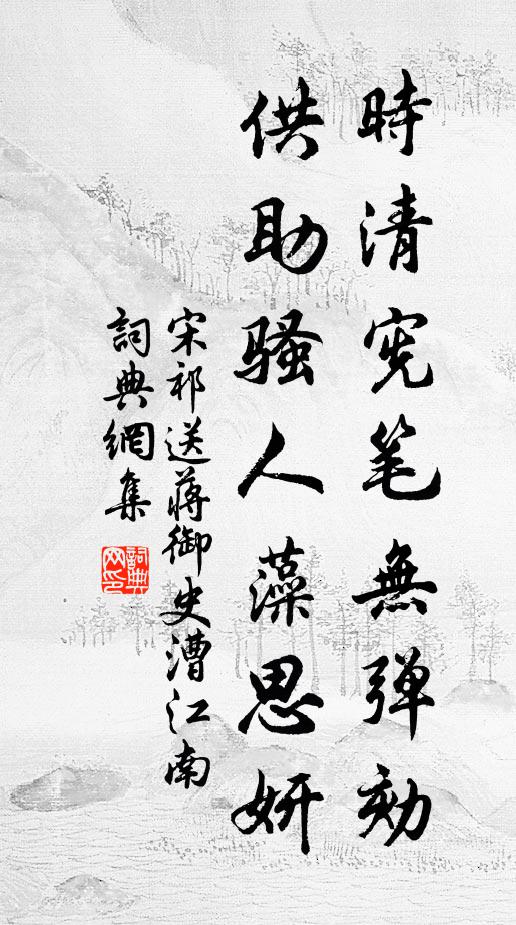 時清宪笔無弹劾
供助骚人藻思妍
宋祁送蒋御史漕江南
詞典網集
詞典网印